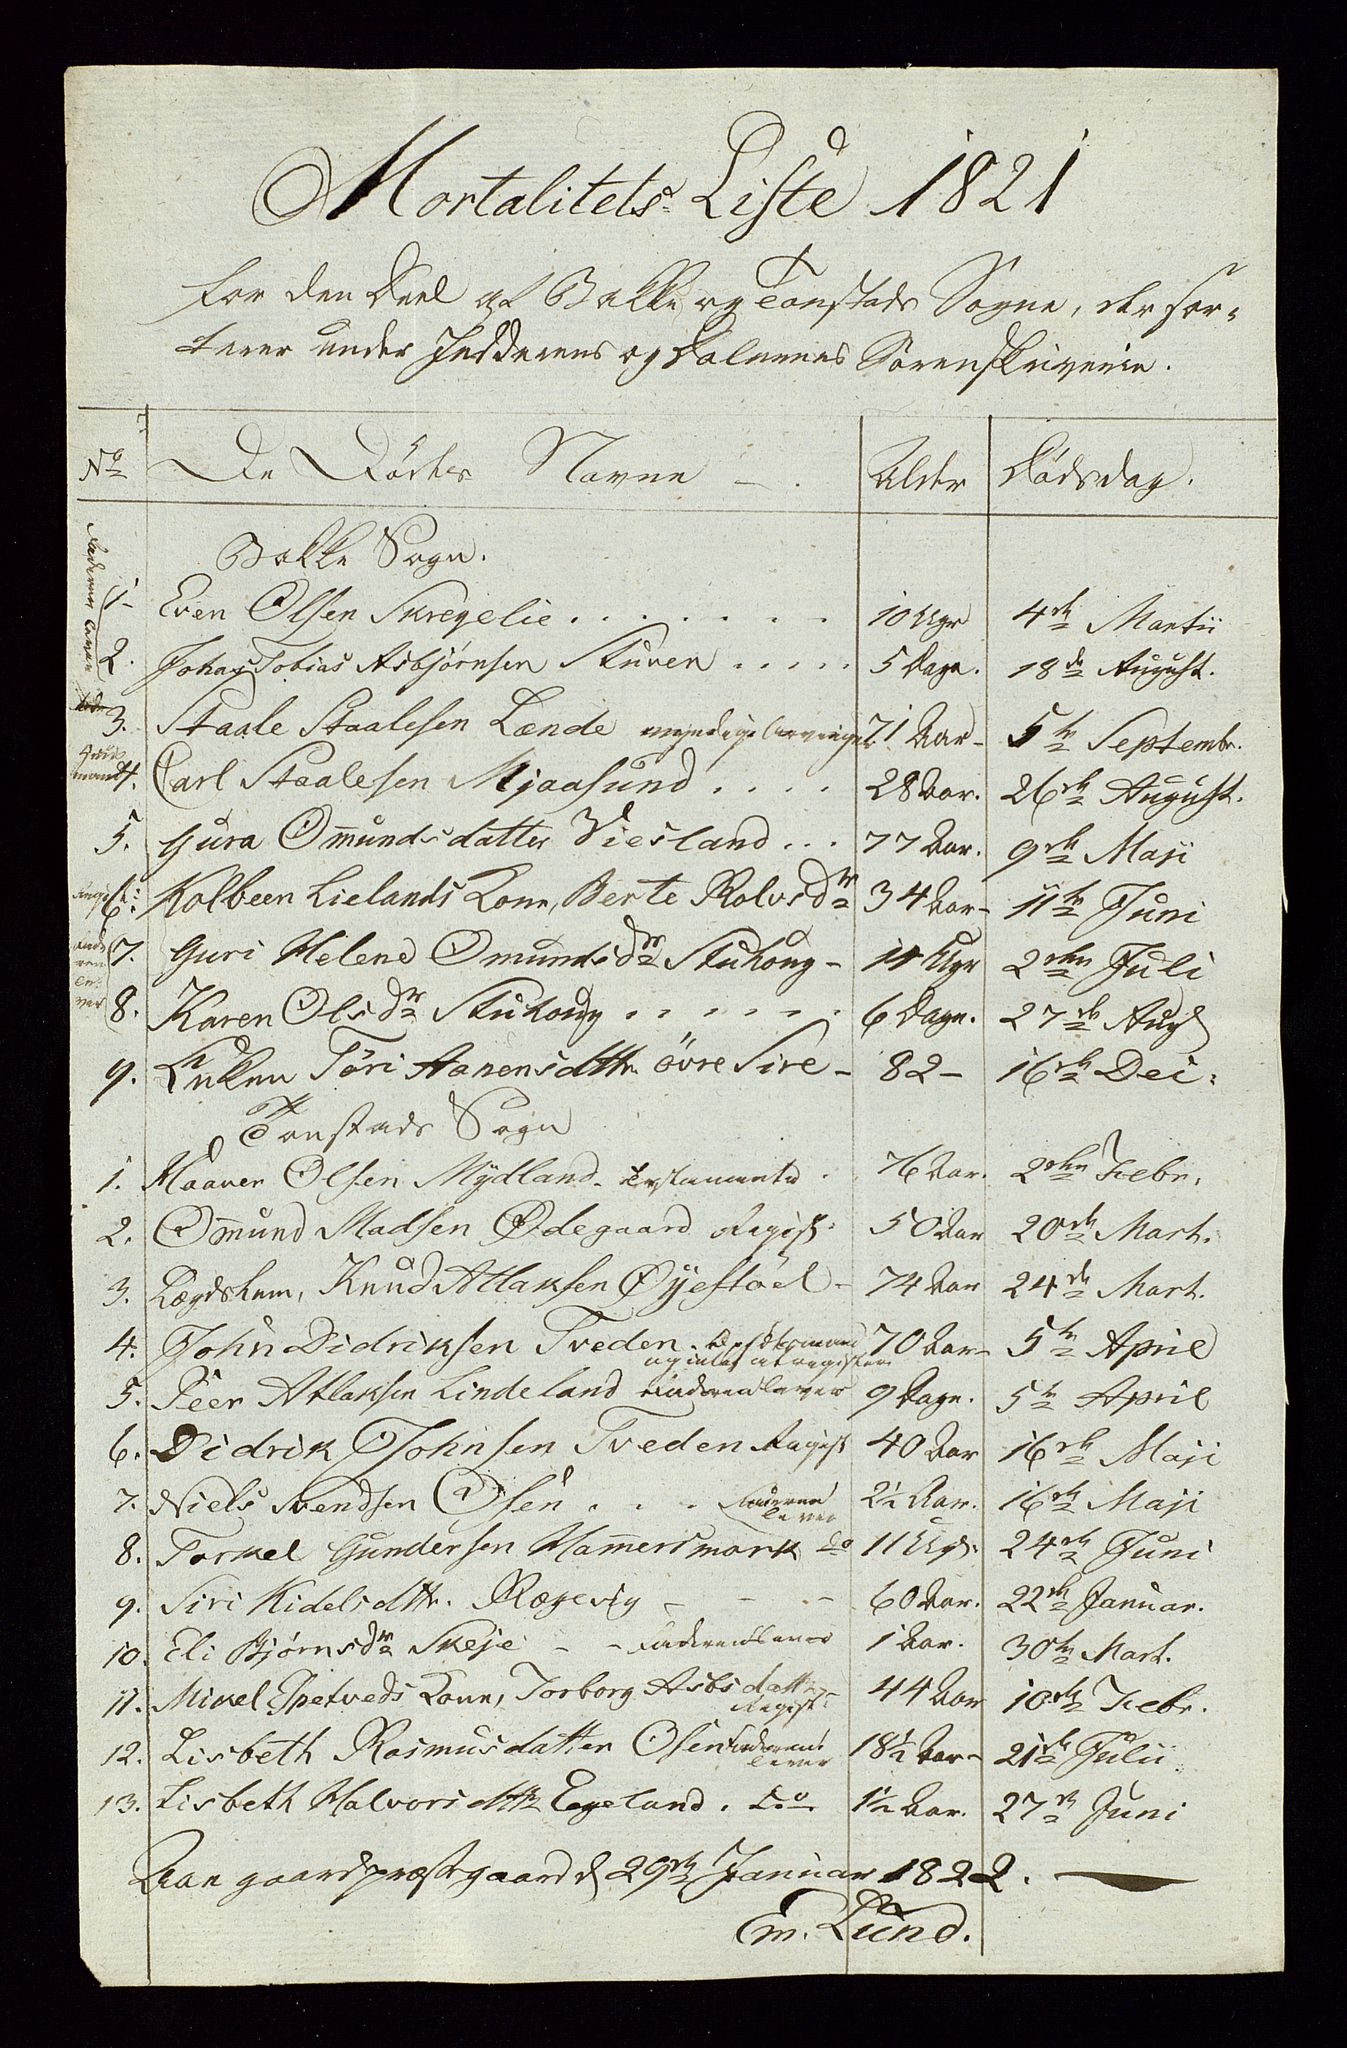 Mortalitets Liste 1821
for den Deel af Bakke og Tonstads Sogne, der sor=
terer under Jedderens og Dalernes Sorenskriverie.
No De Dødes Navne Alder Dødsdag.
Bakke Sogn.
Faderen lever
1 Even Olsen Skregelie 10 Uger 4de Martii
2. Johan Tobias Asbjørnsen Stuven 5 Dage. 18de August.
3. Staale Staalesen Lænde myndige Arvinger 71 Aar 5te Septembr.
Huusmand
4. Carl Staalesen Mjaasund 28 Aar. 26de August.
5. Gura Omundsdatter Viesland 77 Aar. 9de Maji
Regist:
6. Kolbeen Lielands Kone, Berte Rolvsdr 34 Aar 11te Juni
Faderen lever
7. Guri Helene Omundsdr Stuhoug 11 Uger 2den Juli
8. Karen Olsdr Stuhoug 6 Dage. 27de Aug
9. Enken Tøri Aanensdttr. øvre Sire 82 16de Dec:
Tonstads Sogn
1. Haaver Olsen Mydland. Testamente 76 Aar. 2den Febr.
2. Omund Madsen Ødegaard Regist: 50 Aar 20de Mart.
3. Lægdslem, Knud Atlaksen Øyestøel 74 Aar 24de Mart.
4. John Didriksen Tveden. 70 Aar 5te April
og intet at registere
5. Peer Atlaksen Lindeland Faderen lever 9 Dage. 5te April
6. Didrik Johnsen Tveden Regist 40 Aar 16de Maji
7. Niels Svendsen Osen Faderen lever 2½ Aar. 16de Maji
8. Torkel Gundersen Hamersmark do 11 Ug. 24de Juni
9. Siri Kidelsdttr. Rægevig 60 Aar. 22de Januar.
10. Eli Bjørnsdr Skeje Faderen lever 1 Aar. 30te Mart.
11. Mikel Espetveds Kone, Torborg Asbsdattr Regist: 44 Aar 10de Febr.
12. Lisbeth Rasmusdatter Osen Faderen lever 18½ Aar 21de Julii
13. Lisbeth Halvorsdttr Egeland. Do 1½ Aar. 27de Juni
Aangaard præstegaard d 29de Januar 1822.
Em. Lund.